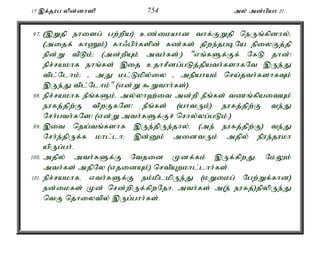 17 இக்தரப லின்னாஸி 754 அல் அன்பியா 21
97. (இறுதி நாளைப் பற்றிய) உண்மையான வாக்குறுதி நெருங்கினால்,
(அதைக் காணும்) காஃபிர்களின் கண்கள் திறந்தபடியே நிலைகுத்தி
நின்று விடும்; (அன்றியும் அவர்கள்:) "எங்களுக்குக் கேடு தான்!
நிச்சயமாக நாங்கள் இதை உதாசீனப்படுத்தியவர்களாகவே இருந்து
விட்டோம்; - அது மட்டுமில்லை - அநியாயம் செய்தவர்களாகவும்
இருந்து விட்டோம்" (என்று கூறுவார்கள்).
98. நிச்சயமாக நீங்களும், அல்லாஹ்வை அன்றி நீங்கள் வணங்கியவையும்
நரகத்திற்கு விறகுகளே! நீங்கள் (யாவரும்) நரகத்திற்கு வந்து
சேர்பவர்களே! (என்று அவர்களுக்குச் சொல்லப்படும்.)
99. இவை தெய்வங்களாக இருந்திருந்தால், (அந் நரகத்திற்கு) வந்து
சேர்ந்திருக்க மாட்டா; இன்னும் அனைவரும் அதில் நிரந்தரமா
யிருப்பர்.
100. அதில் அவர்களுக்கு வேதனை முனக்கம் இருக்கிறது. மேலும்
அவர்கள் அதிலே (எதனையும்) செவியுறமாட்டார்கள்.
101. நிச்சயமாக, எவர்களுக்கு நம்மிடமிருந்து (மறுமைப் பேற்றுக்கான)
நன்மைகள் முன் சென்றிருக்கிறதோ, அவர்கள் அ(ந் நரகத்)திலிருந்து
வெகு தொலைவில் இருப்பார்கள்.